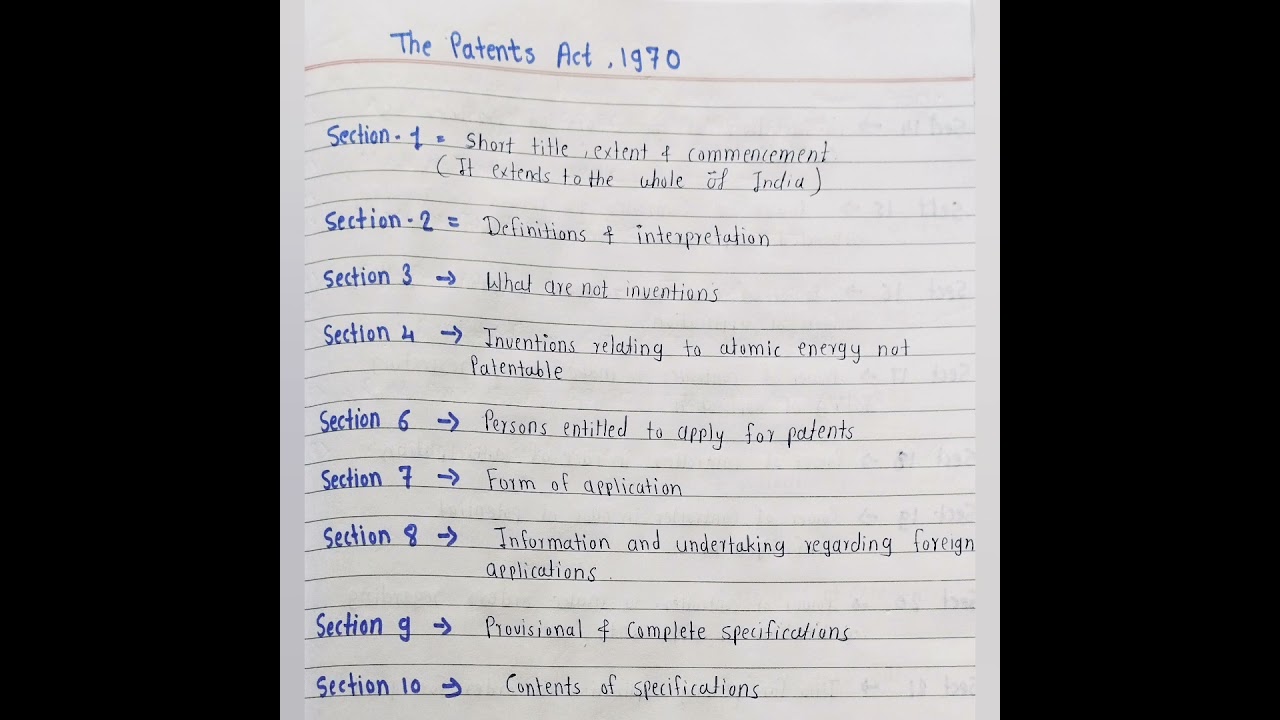 The Patents Act, 1970
Section-1 = Short title, extent & commencement
(It extends to the whole of India)
Section-2 = Definitions & interpretation
Section 3 → What are not inventions
Section 4 → Inventions relating to atomic energy not
Patentable
Section 6 → Persons entitled to apply for patents
Section 7 → Form of application
Section 8 → Information and undertaking regarding foreign
applications.
Section 9 → Provisional & Complete specifications
Section 10 → Contents of specifications